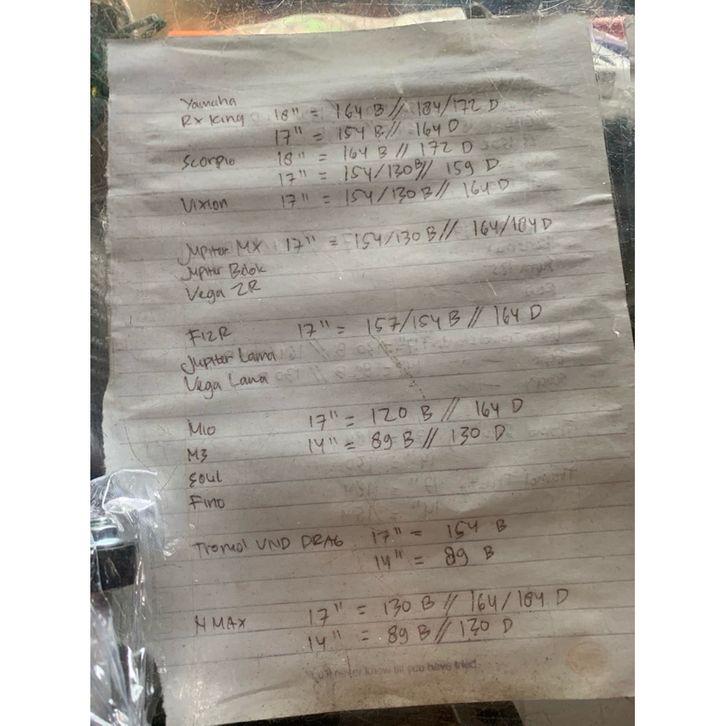 Yamaha
Rx King 18" = 164 B // 184/172 D
17" = 154 B // 164 D
Scorpio 18" = 164 B // 172 D
17" = 154/130 B // 159 D
Vixion 17" = 154/130 B // 164 D
Jupiter MX 17" = 154/130 B // 164/184 D
Jupiter Bdok
Vega ZR
F1ZR 17" = 157/154 B // 164 D
Jupiter Lama
Vega Lama
Mio 17" = 120 B // 164 D
M3 14" = 89 B // 130 D
Soul
Fino
Tromol VND DRAG 17" = 154 B
14" = 89 B
N MAX 17" = 130 B // 164/184 D
14" = 89 B // 130 D
You'll never know till you have tried